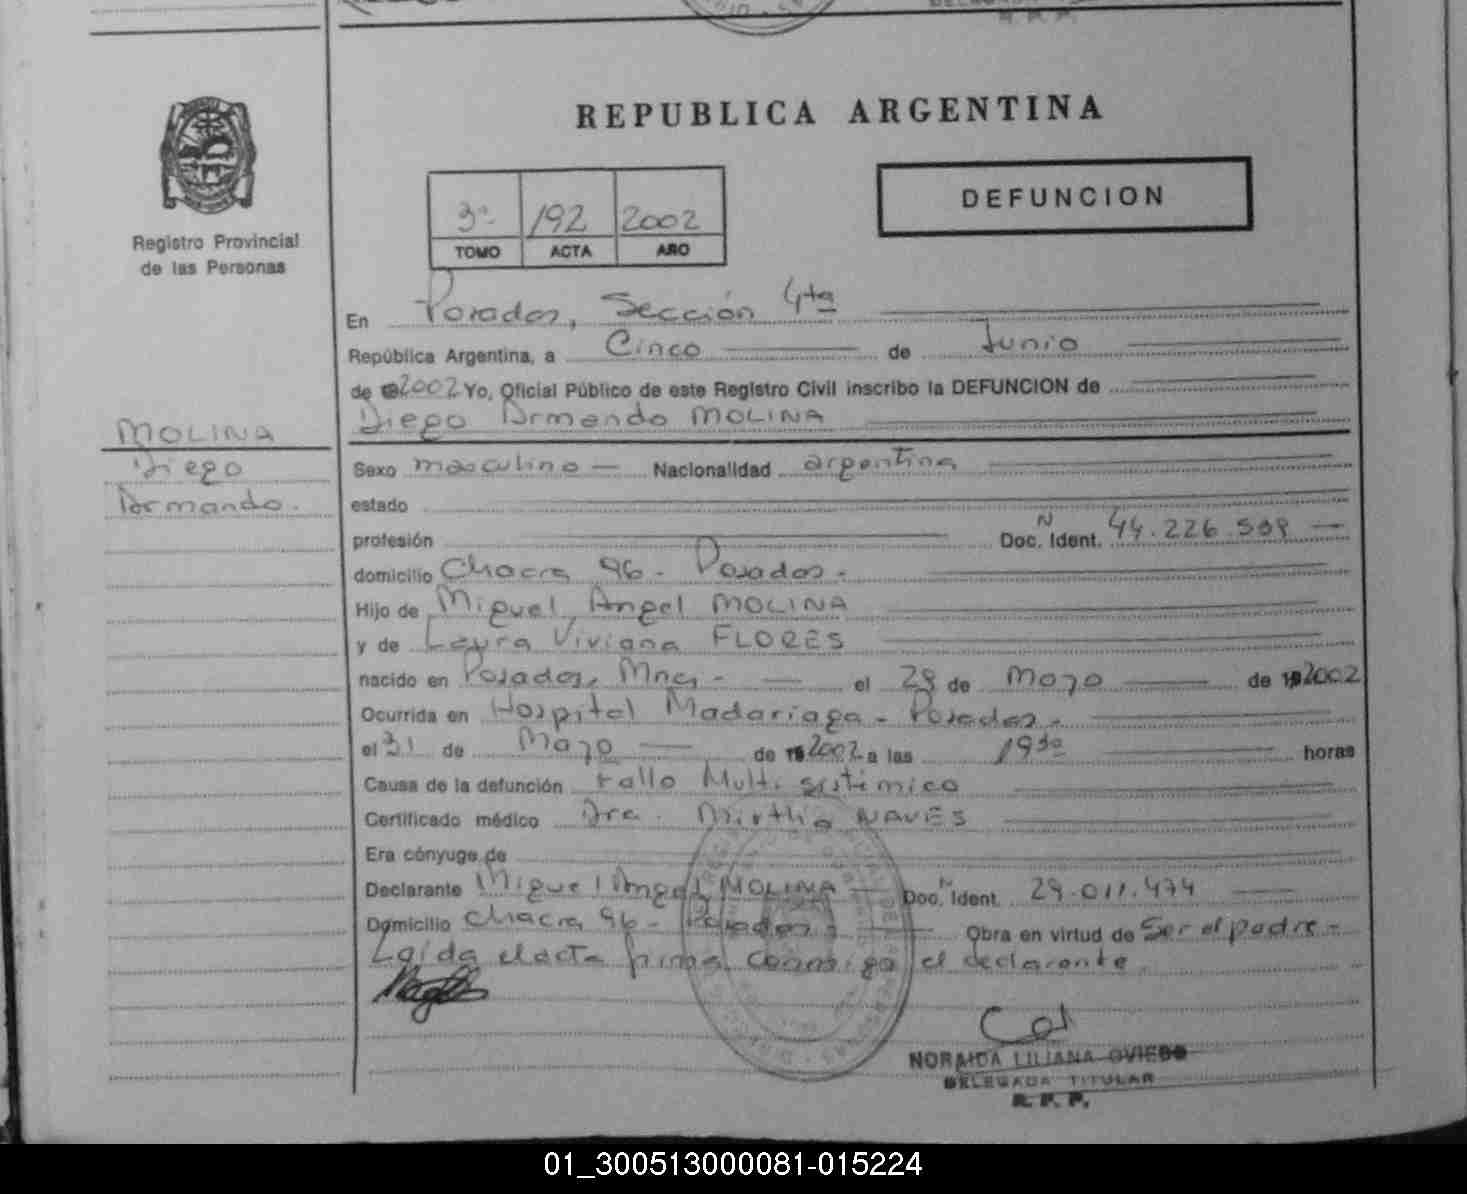 REPUBLICA ARGENTINA
DEFUNCION
3º 192 2002
TOMO ACTA AÑO
Registro Provincial
de las Personas
En Posadas, Sección 4ta
República Argentina, a Cinco de Junio
de 2002 Yo, Oficial Público de este Registro Civil inscribo la DEFUNCION de
Diego Armando MOLINA
MOLINA
Diego
Armando.
Sexo masculino Nacionalidad argentina
estado
profesión Doc. Ident. N 44.226.
domicilio Chacra 96 - Posadas -
Hijo de Miguel Angel MOLINA
y de Laura Viviana FLORES
nacido en Posadas, Mnes - el 29 de Mayo de 2002
Ocurrida en Hospital Madariaga - Posadas -
el 31 de Mayo de 2002 a las 19 30 horas
Causa de la defunción Fallo Multi sistémico
Certificado médico Dra. Mirtha NAVES
Era cónyuge de
Declarante Miguel Angel MOLINA Doc. Ident. N 29.011.474
Domicilio Chacra 96 - Posadas - Obra en virtud de Ser el padre -
Leída el acta firma conmigo el declarante
NORAIDA LILIANA OVIEDO
DELEGADA TITULAR
R. P. P.
01_300513000081-015224